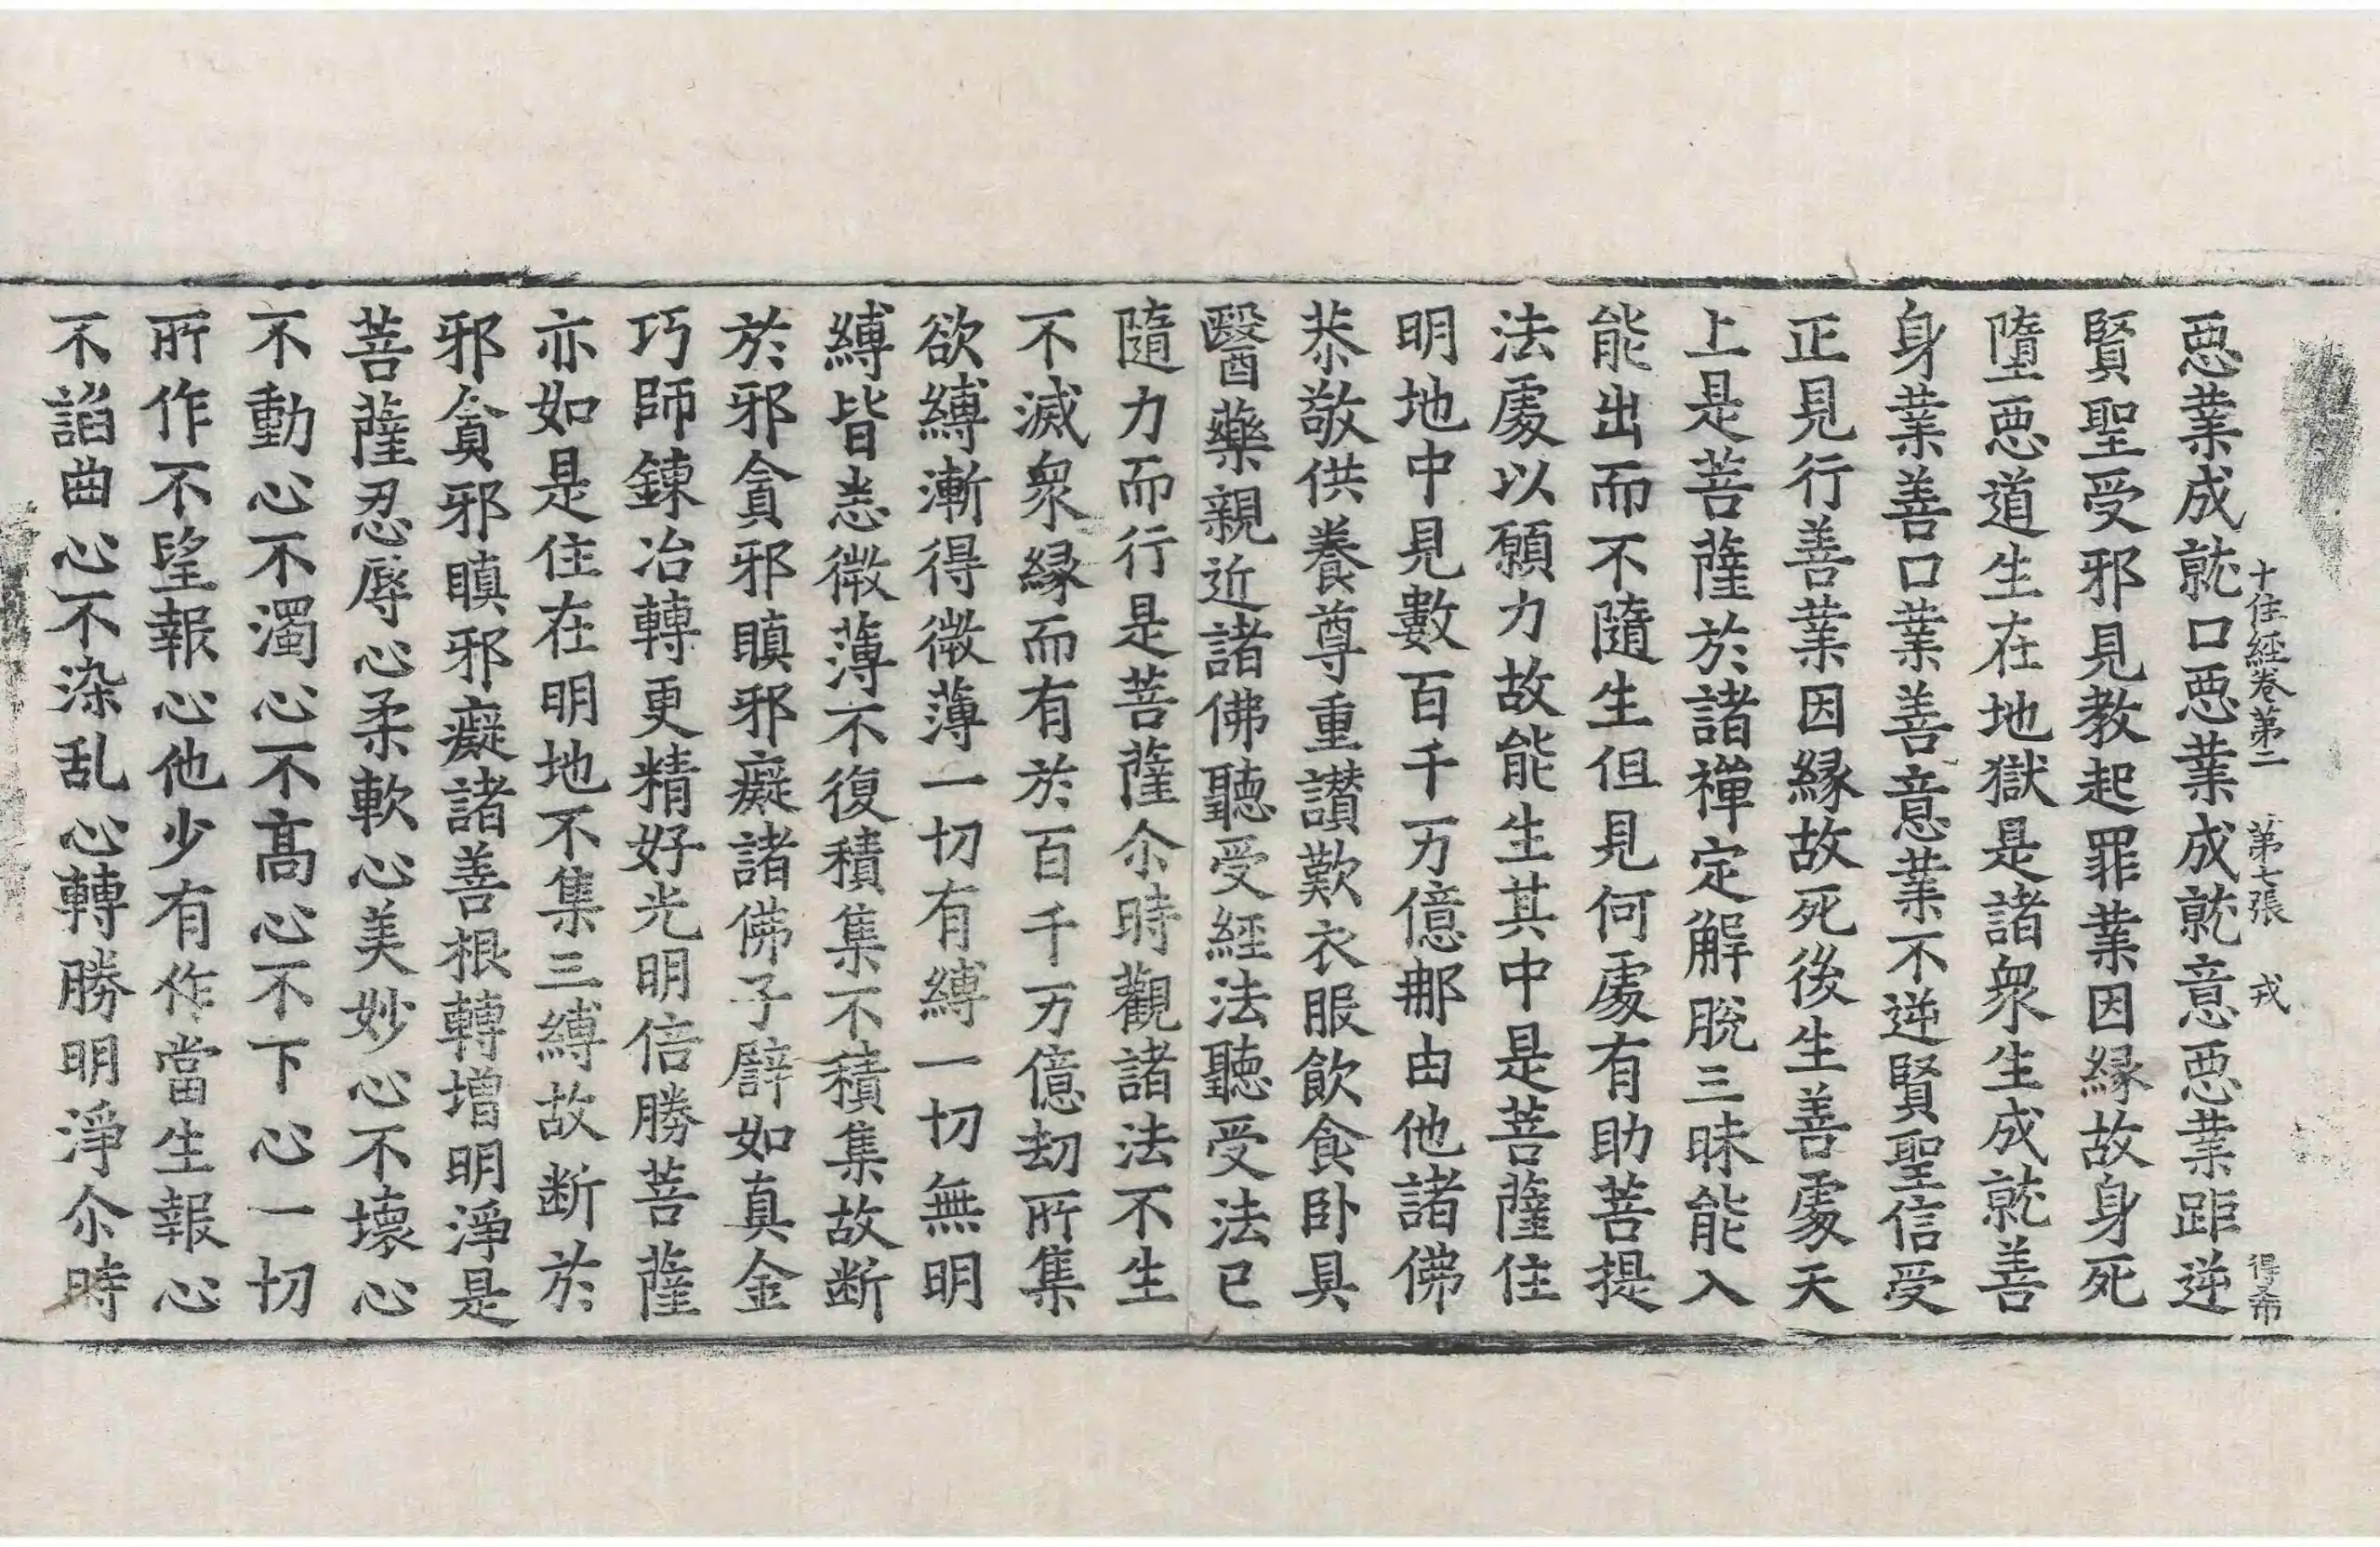 十住經卷第二　第七張　戎　得希
惡業成就口惡業成就意惡業距逆
賢聖受邪見教起罪業因縁故身死
墮惡道生在地獄是諸衆生成就善
身業善口業善意業不逆賢聖信受
正見行善業因縁故死後生善處天
上是菩薩於諸禪定解脫三昧能入
能出而不隨生但見何處有助菩提
法處以願力故能生其中是菩薩住
明地中見數百千万億那由他諸佛
恭敬供養尊重讃歎衣服飲食卧具
醫藥親近諸佛聽受經法聽受法已
隨力而行是菩薩尒時觀諸法不生
不滅衆縁而有於百千万億劫所集
欲縛漸得微薄一切有縛一切無明
縛皆悉微薄不復積集不積集故断
於邪貪邪瞋邪癡諸佛子譬如真金
巧師鍊冶轉更精好光明倍勝菩薩
亦如是住在明地不集三縛故断於
邪貪邪瞋邪癡諸善根轉增明淨是
菩薩忍辱心柔軟心美妙心不壞心
不動心不濁心不高心不下心一切
所作不望報心他少有作當生報心
不諂曲心不染乱心轉勝明淨尒時